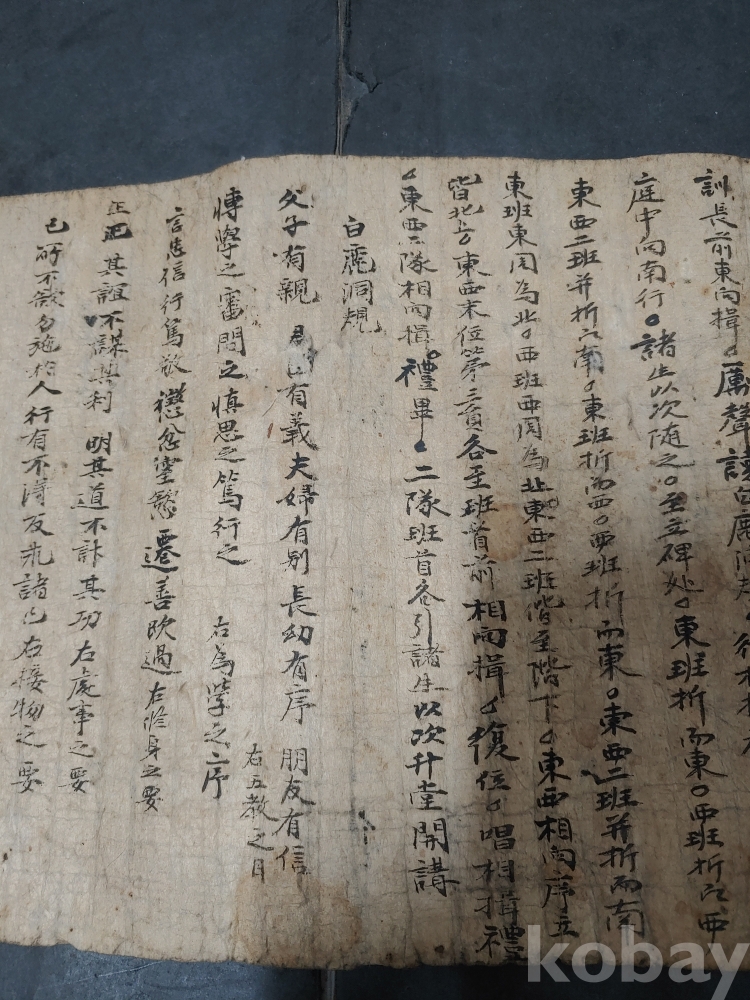 訓長前東向揖。厲聲讀白鹿洞規。行相揖
庭中向南行。諸生以次随之。至立碑处。東班折而東。西班折而西
東西二班并折而南。東班折而西。西班折而東。東西二班并折而南
東班東周為北。西班西周為北東西二班偕至階下。東西相向序立
皆北上東西末位第三員各至班首前相向揖。復位。唱相揖禮
。東西二隊相向揖。禮畢。二隊班首各引諸生以次升堂開講
白鹿洞規
父子有親 君臣有義夫婦有別長幼有序 朋友有信
右五教之目
博學之審問之慎思之篤行之 右為学之序
言忠信行篤敬懲忿窒慾遷善改過右修身之要
正其誼不謀其利 明其道不計其功右處事之要
己所不欲勿施於人行有不得反求諸己右接物之要
kobay